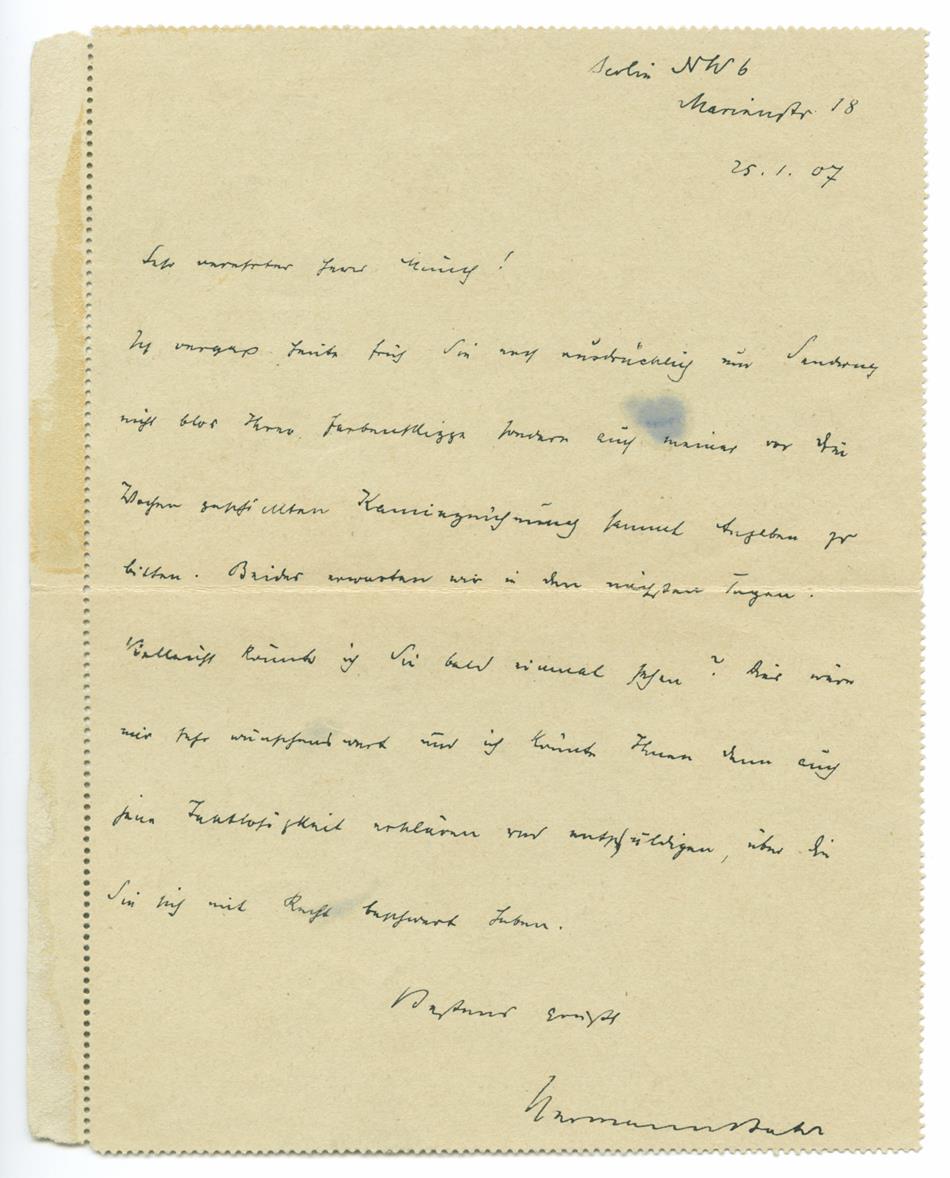 Berlin NW 6
Marienstr 18
25. 1. 07
Sehr verehrter Herr Munch!
Ich vergass heute früh Sie noch ausdrücklich um Sendung
nicht blos Ihrer Farbenskizze sondern auch meiner vor drei
Wochen geschickten Kaminzeichnung sammt Angaben zu
bitten. Beides erwarten wir in den nächsten Tagen.
Vielleicht könnte ich Sie bald einmal sehen? Dies wäre
mir sehr wünschenswert und ich könnte Ihnen dann auch
jene Taktlosigkeit erklären und entschuldigen, über die
Sie sich mit Recht beschwert haben.
Bestens grüsst
Hermann Bahr